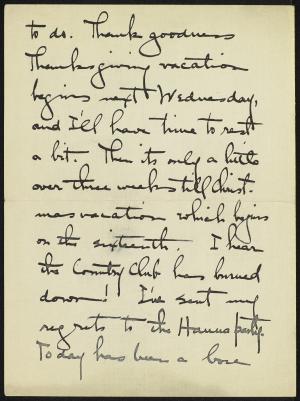 to do. Thank goodness
Thanksgiving vacation
begins next Wednesday,
and I'll have time to rest
a bit. Then its only a little
over three weeks till Christ-
mas vacation which begins
on the sixteenth. I hear
the Country Club has burned
down! I've sent my
regrets to the Hanna party.
Today has been a bore